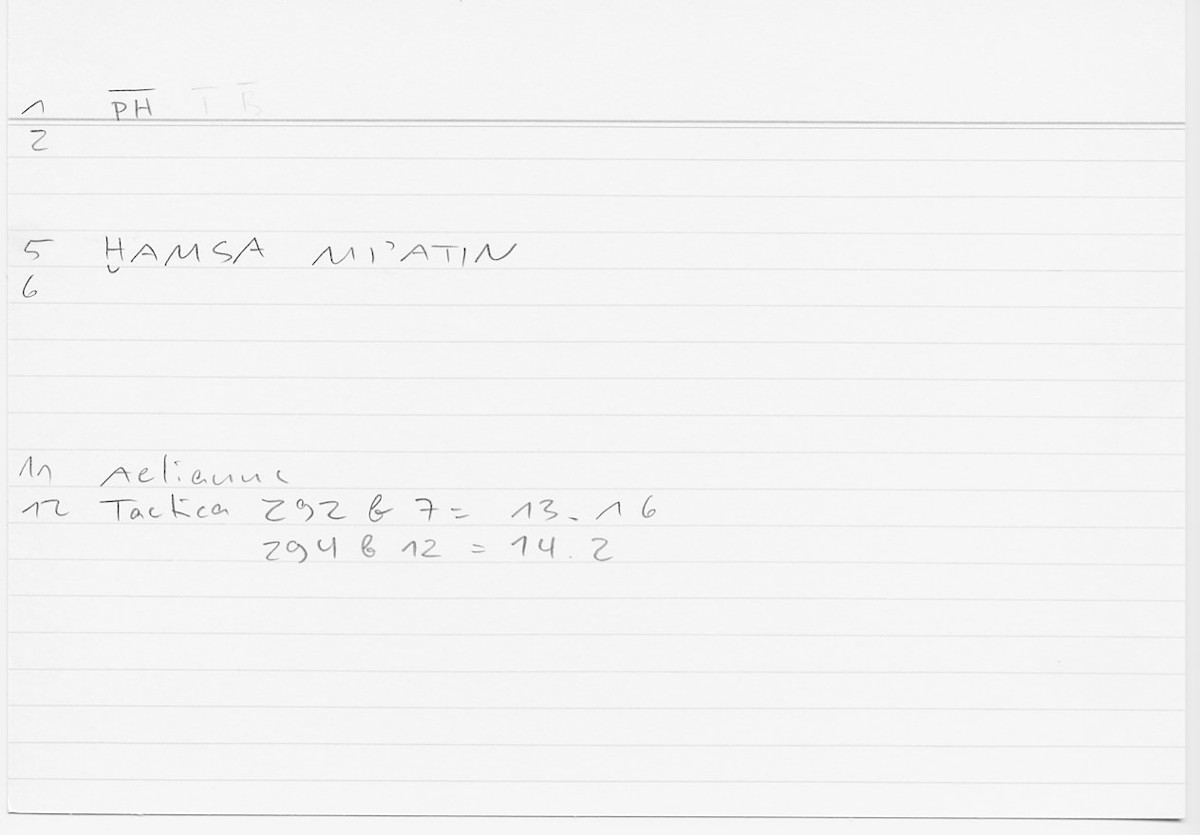 1 P̅H̅ T̅ B̅
2
5 ḪAMSA MI'ATIN
6
11 Aelianus
12 Tactica 292 b 7 = 13.16
294 b 12 = 14.2